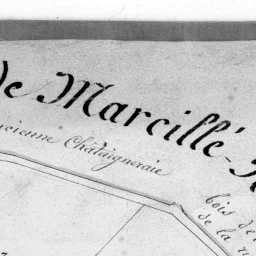 de Marcillé-
ncienne Châtaigneraie
bois de
de la